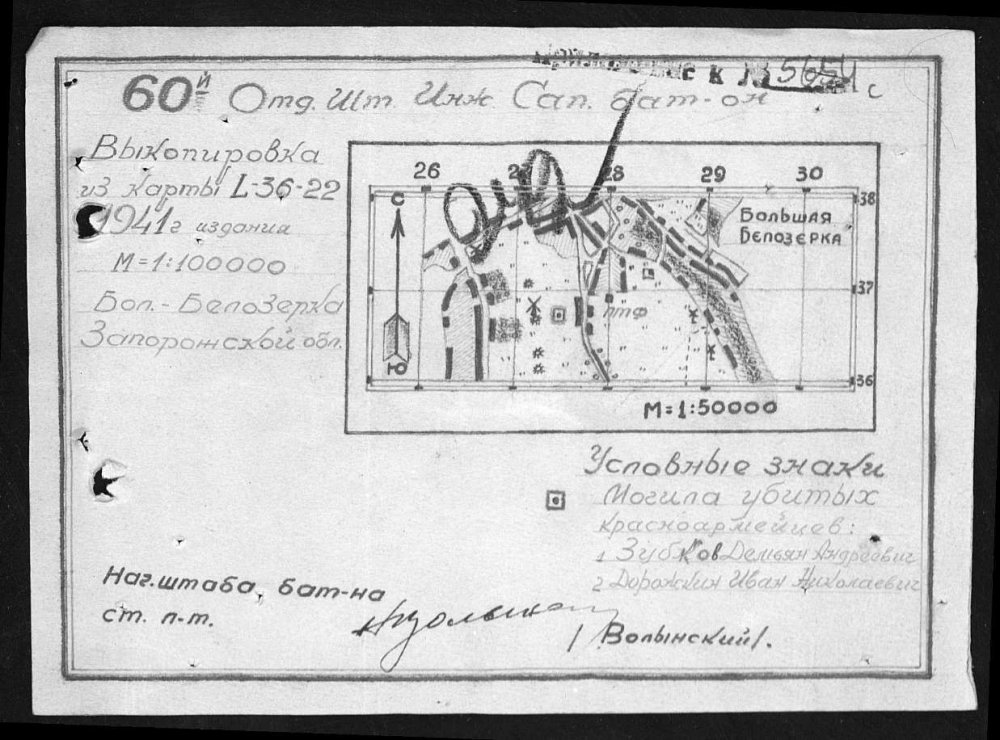 к № 5654 с
60й Отд. Шт. Инж Сап. бат-он
Выкопировка
из карты L-36-22
1941г издания
М=1:100000
Бол.-Белозерка
Запорожской обл.
26 27 28 29 30
38
37
36
С
Ю
Большая
Белозерка
птф
М=1:50000
Условные знаки
Могила убитых
красноармейцев:
1 Зубков Демьян Андреевич
2 Дорожкин Иван Николаевич
Нач. штаба, бат-на
ст. л-т.
/Волынский/.